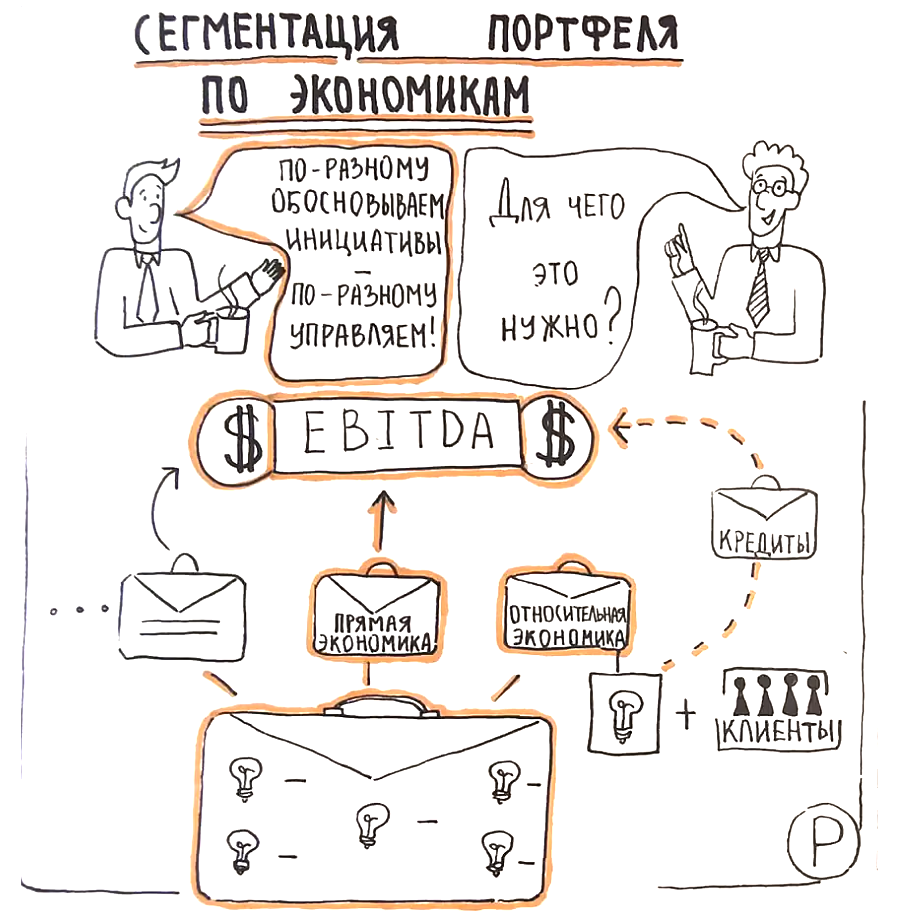 СЕГМЕНТАЦИЯ ПОРТФЕЛЯ
ПО ЭКОНОМИКАМ
ПО-РАЗНОМУ
ОБОСНОВЫВАЕМ
ИНИЦИАТИВЫ
–
ПО-РАЗНОМУ
УПРАВЛЯЕМ!
Для чего
это
нужно?
$ EBITDA $
КРЕДИТЫ
ПРЯМАЯ
ЭКОНОМИКА
ОТНОСИТЕЛЬНАЯ
ЭКОНОМИКА
+
КЛИЕНТЫ
P